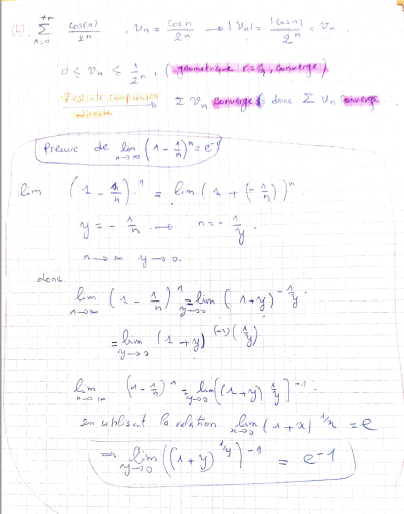 (h) $\sum_{n=0}^{+\infty} \frac{\cos(n)}{2^n}$ , $u_n = \frac{\cos n}{2^n}$ → $|u_n| = \frac{|\cos n|}{2^n} = v_n$
$0 \leq v_n \leq \frac{1}{2^n}$, (géometrique r=½, converge)
Test de comparaison → Σ $v_n$ converge donc Σ $u_n$ converge
Preuve de $\lim_{n \to \infty} (1 - \frac{1}{n})^n = e^{-1}$
lim $(1 - \frac{1}{n})^n = \lim (1 + (-\frac{1}{n}))^n$
$y = -\frac{1}{n}$ → $n = -\frac{1}{y}$
n → ∞ y → 0.
donc
$\lim_{n \to \infty} (1 - \frac{1}{n})^n = \lim_{y \to 0} (1 + y)^{-\frac{1}{y}}$
$= \lim_{y \to 0} (1 + y)^{(-1)(\frac{1}{y})}$
$\lim_{n \to \infty} (1 - \frac{1}{n})^n = \lim_{y \to 0} [(1 + y)^{\frac{1}{y}}]^{-1}$
en utilisant la relation $\lim_{x \to 0} (1 + x)^{1/x} = e$
⟹ $\lim_{y \to 0} ((1 + y)^{1/y})^{-1} = e^{-1}$